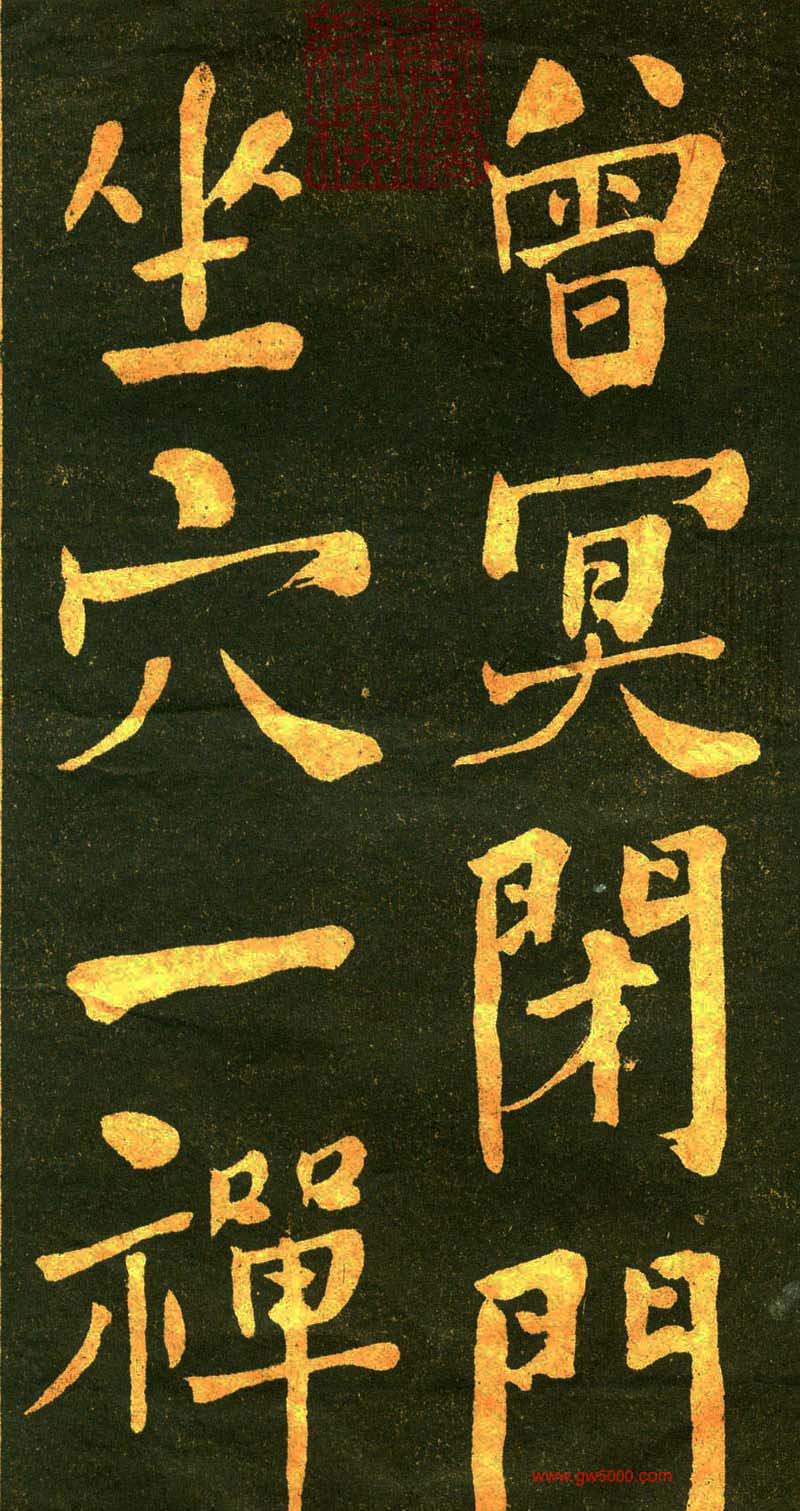 曾冥閉門
坐穴一禪
www.gw5000.com